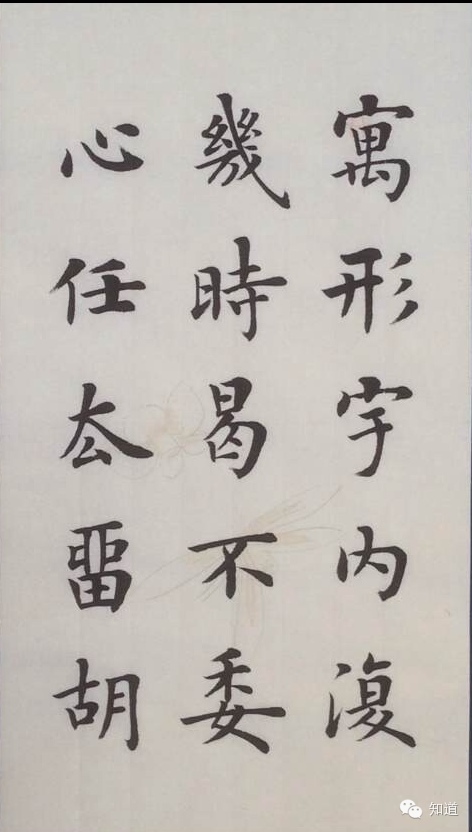 寓形宇内復
幾時曷不委
心任去留胡
知道